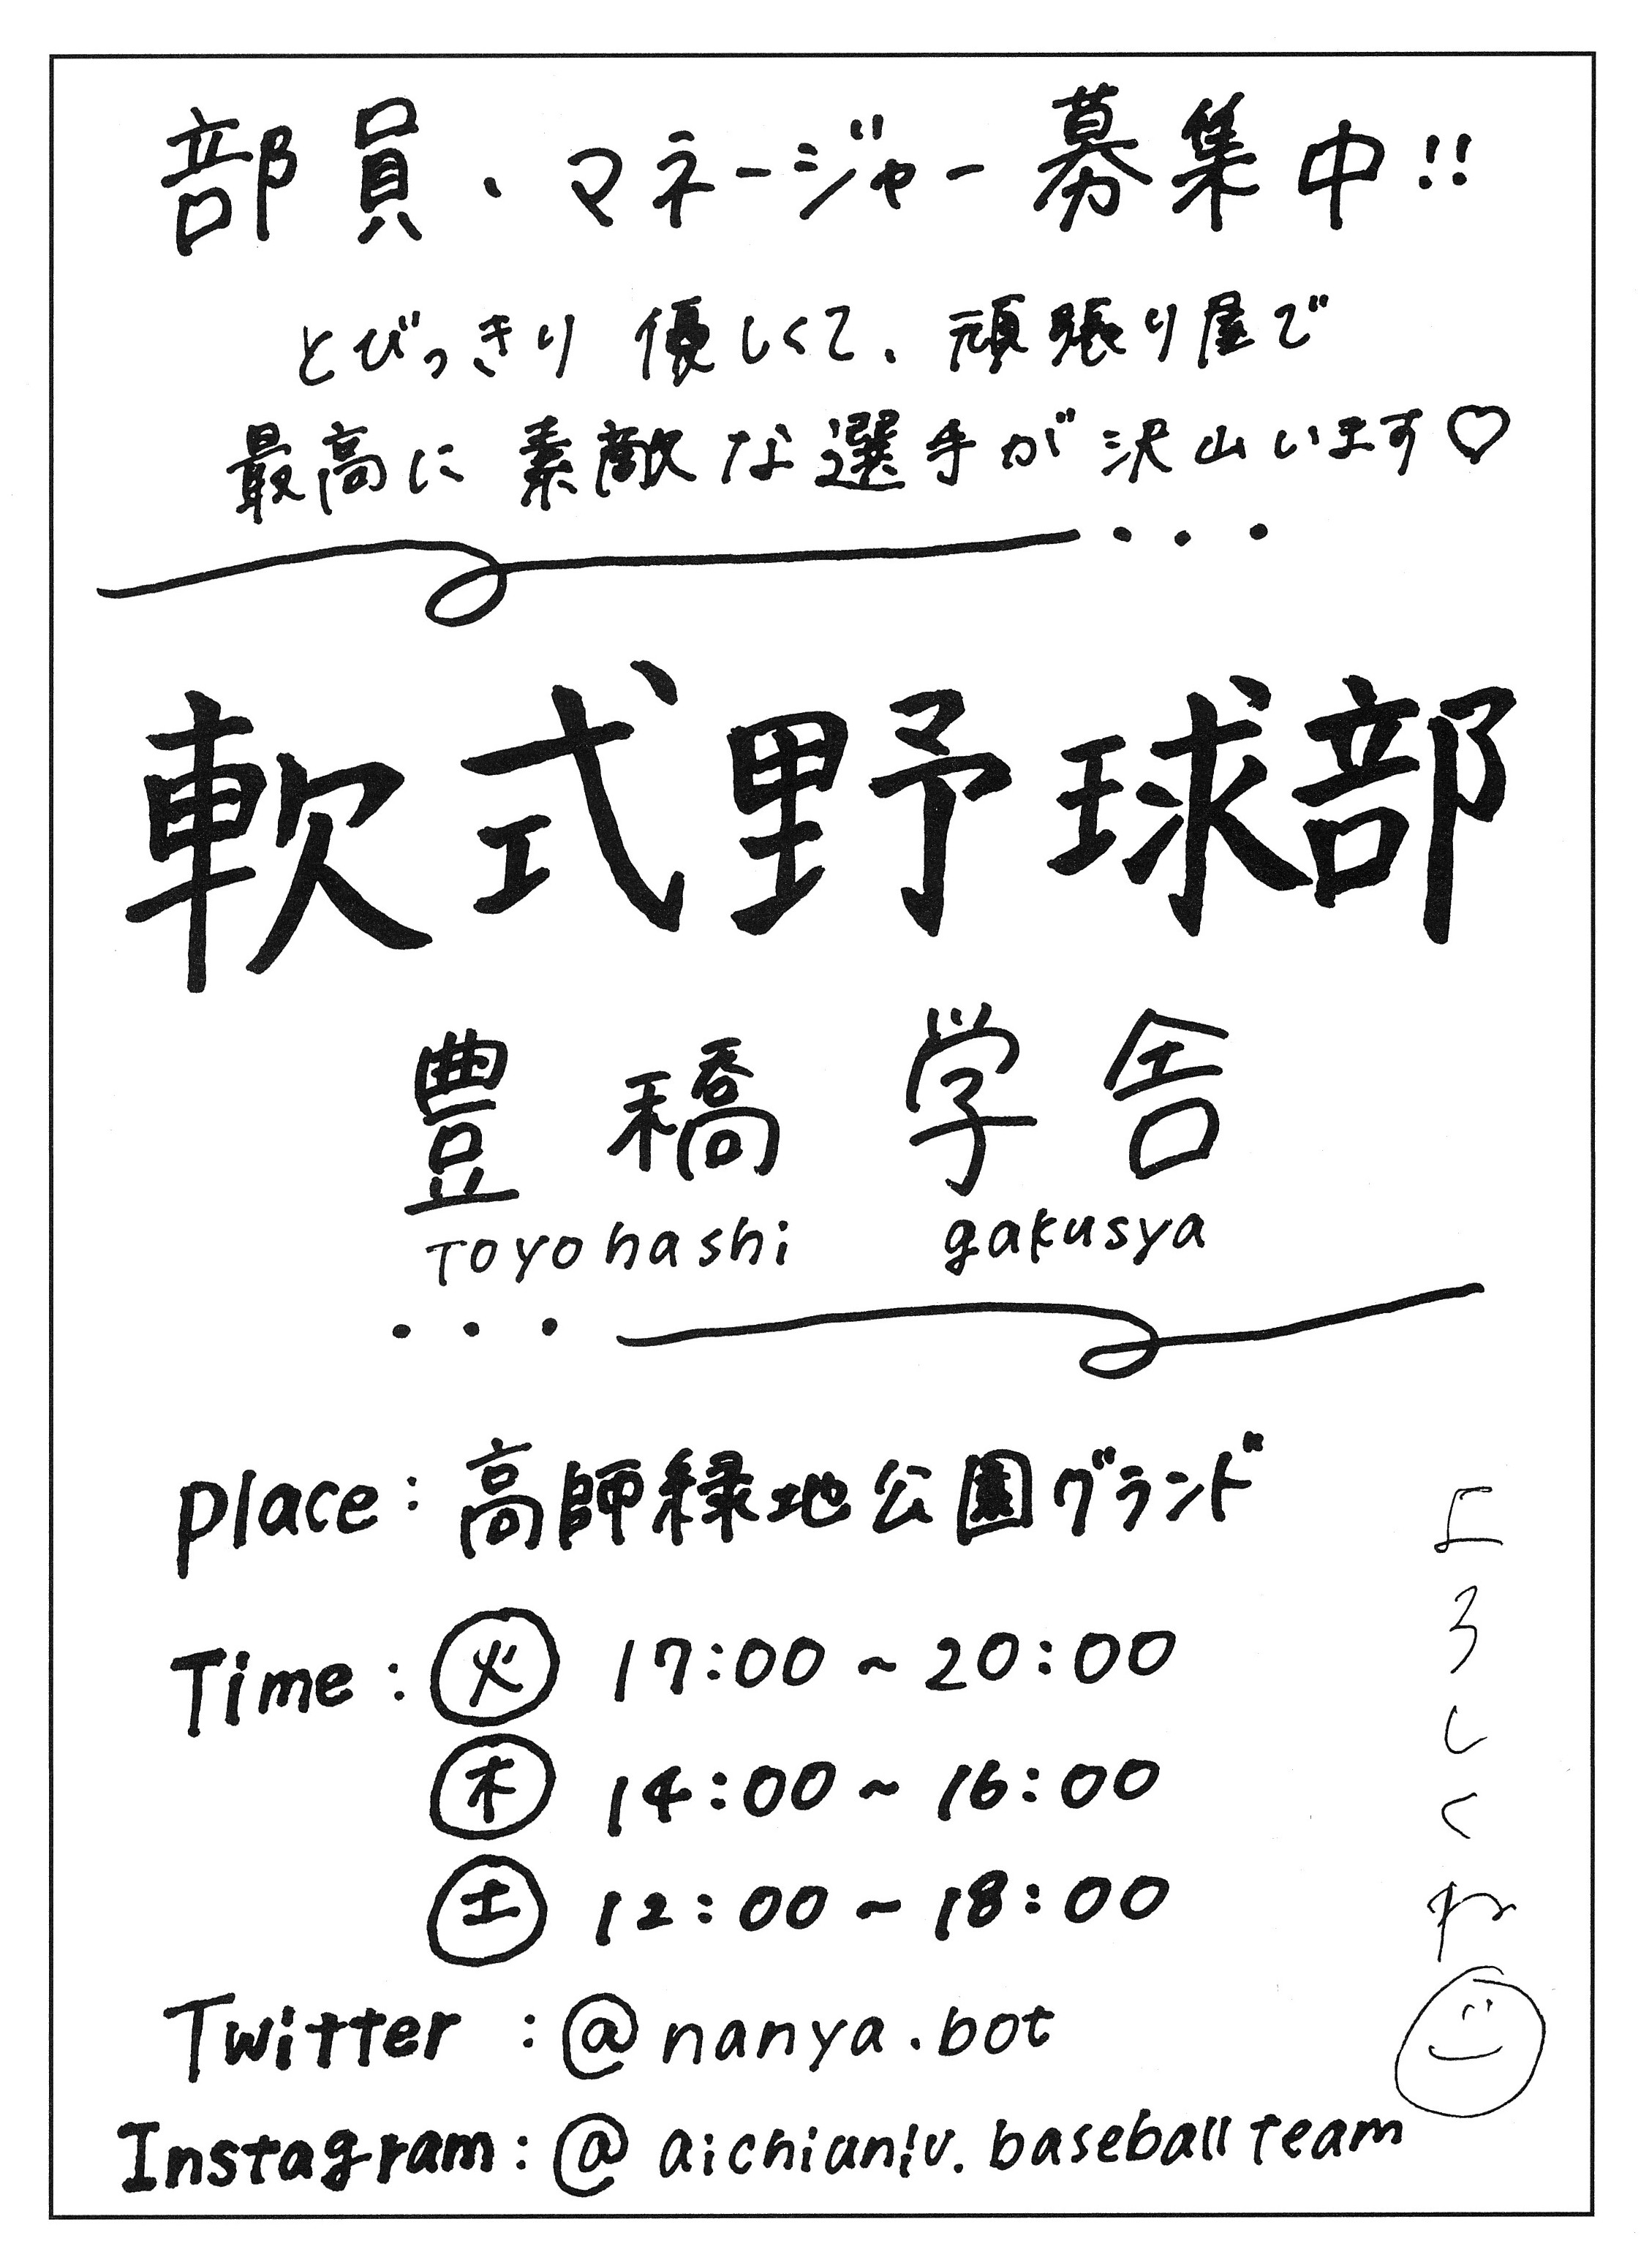 部員・マネージャー募集中!!
とびっきり優しくて、頑張り屋で
最高に素敵な選手が沢山います♡
軟式野球部
豊橋学舎
Toyohashi gakusya
place: 高師緑地公園グランド
Time: ㊋ 17:00~20:00
㊍ 14:00~16:00
㊏ 12:00~18:00
Twitter : @nanya.bot
Instagram: @aichiuniv.baseballteam
よろしくね